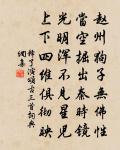 趙州狗子無佛性
當空掘出秦時鏡
光明渾不見星兒
上下四維俱徹映
釋了演頌古三首詞典
網集